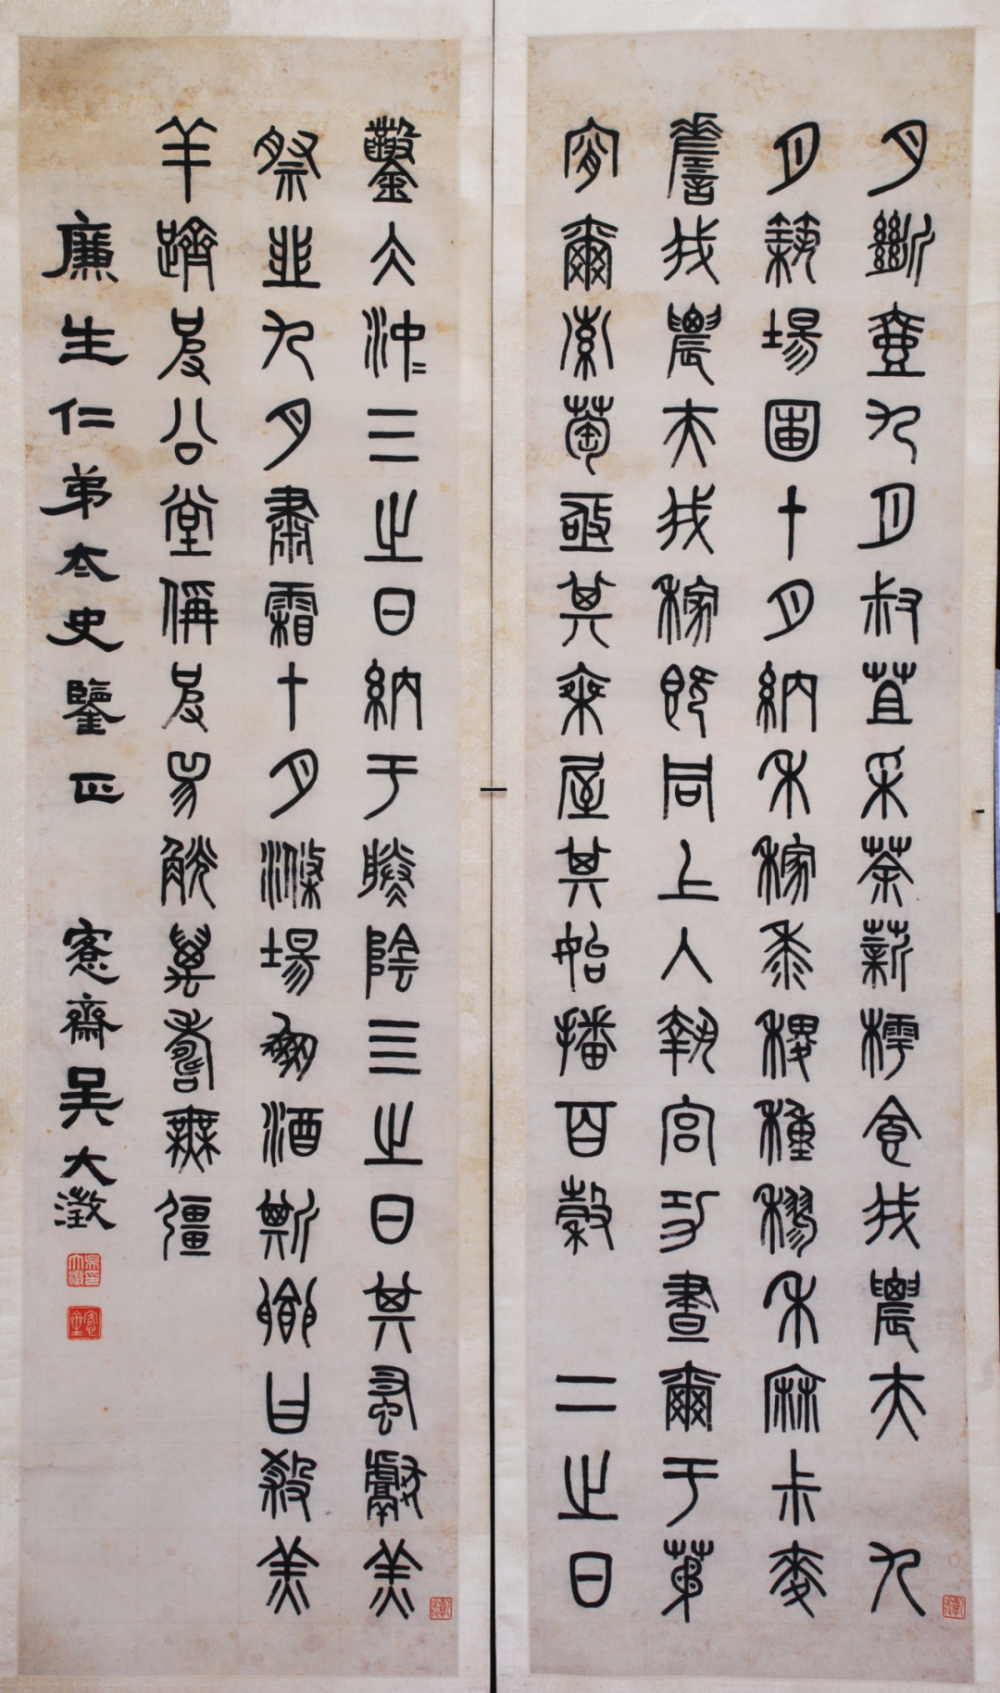 月斷壺九月叔苴采荼薪樗食我農夫 九
月築場圃十月納禾稼黍稷種穋禾麻尗麥
嗟我農夫我稼既同上入執宮功晝爾于茅
宵爾索綯亟其乘屋其始播百穀 二之日
鑿冰沖〻三之日納于凌陰四之日其蚤獻羔
祭韭九月肅霜十月滌場朋酒斯饗曰殺羔
羊躋彼公堂稱彼兕觥萬壽無彊
廉生仁弟太史鑒正 愙齋吳大澂